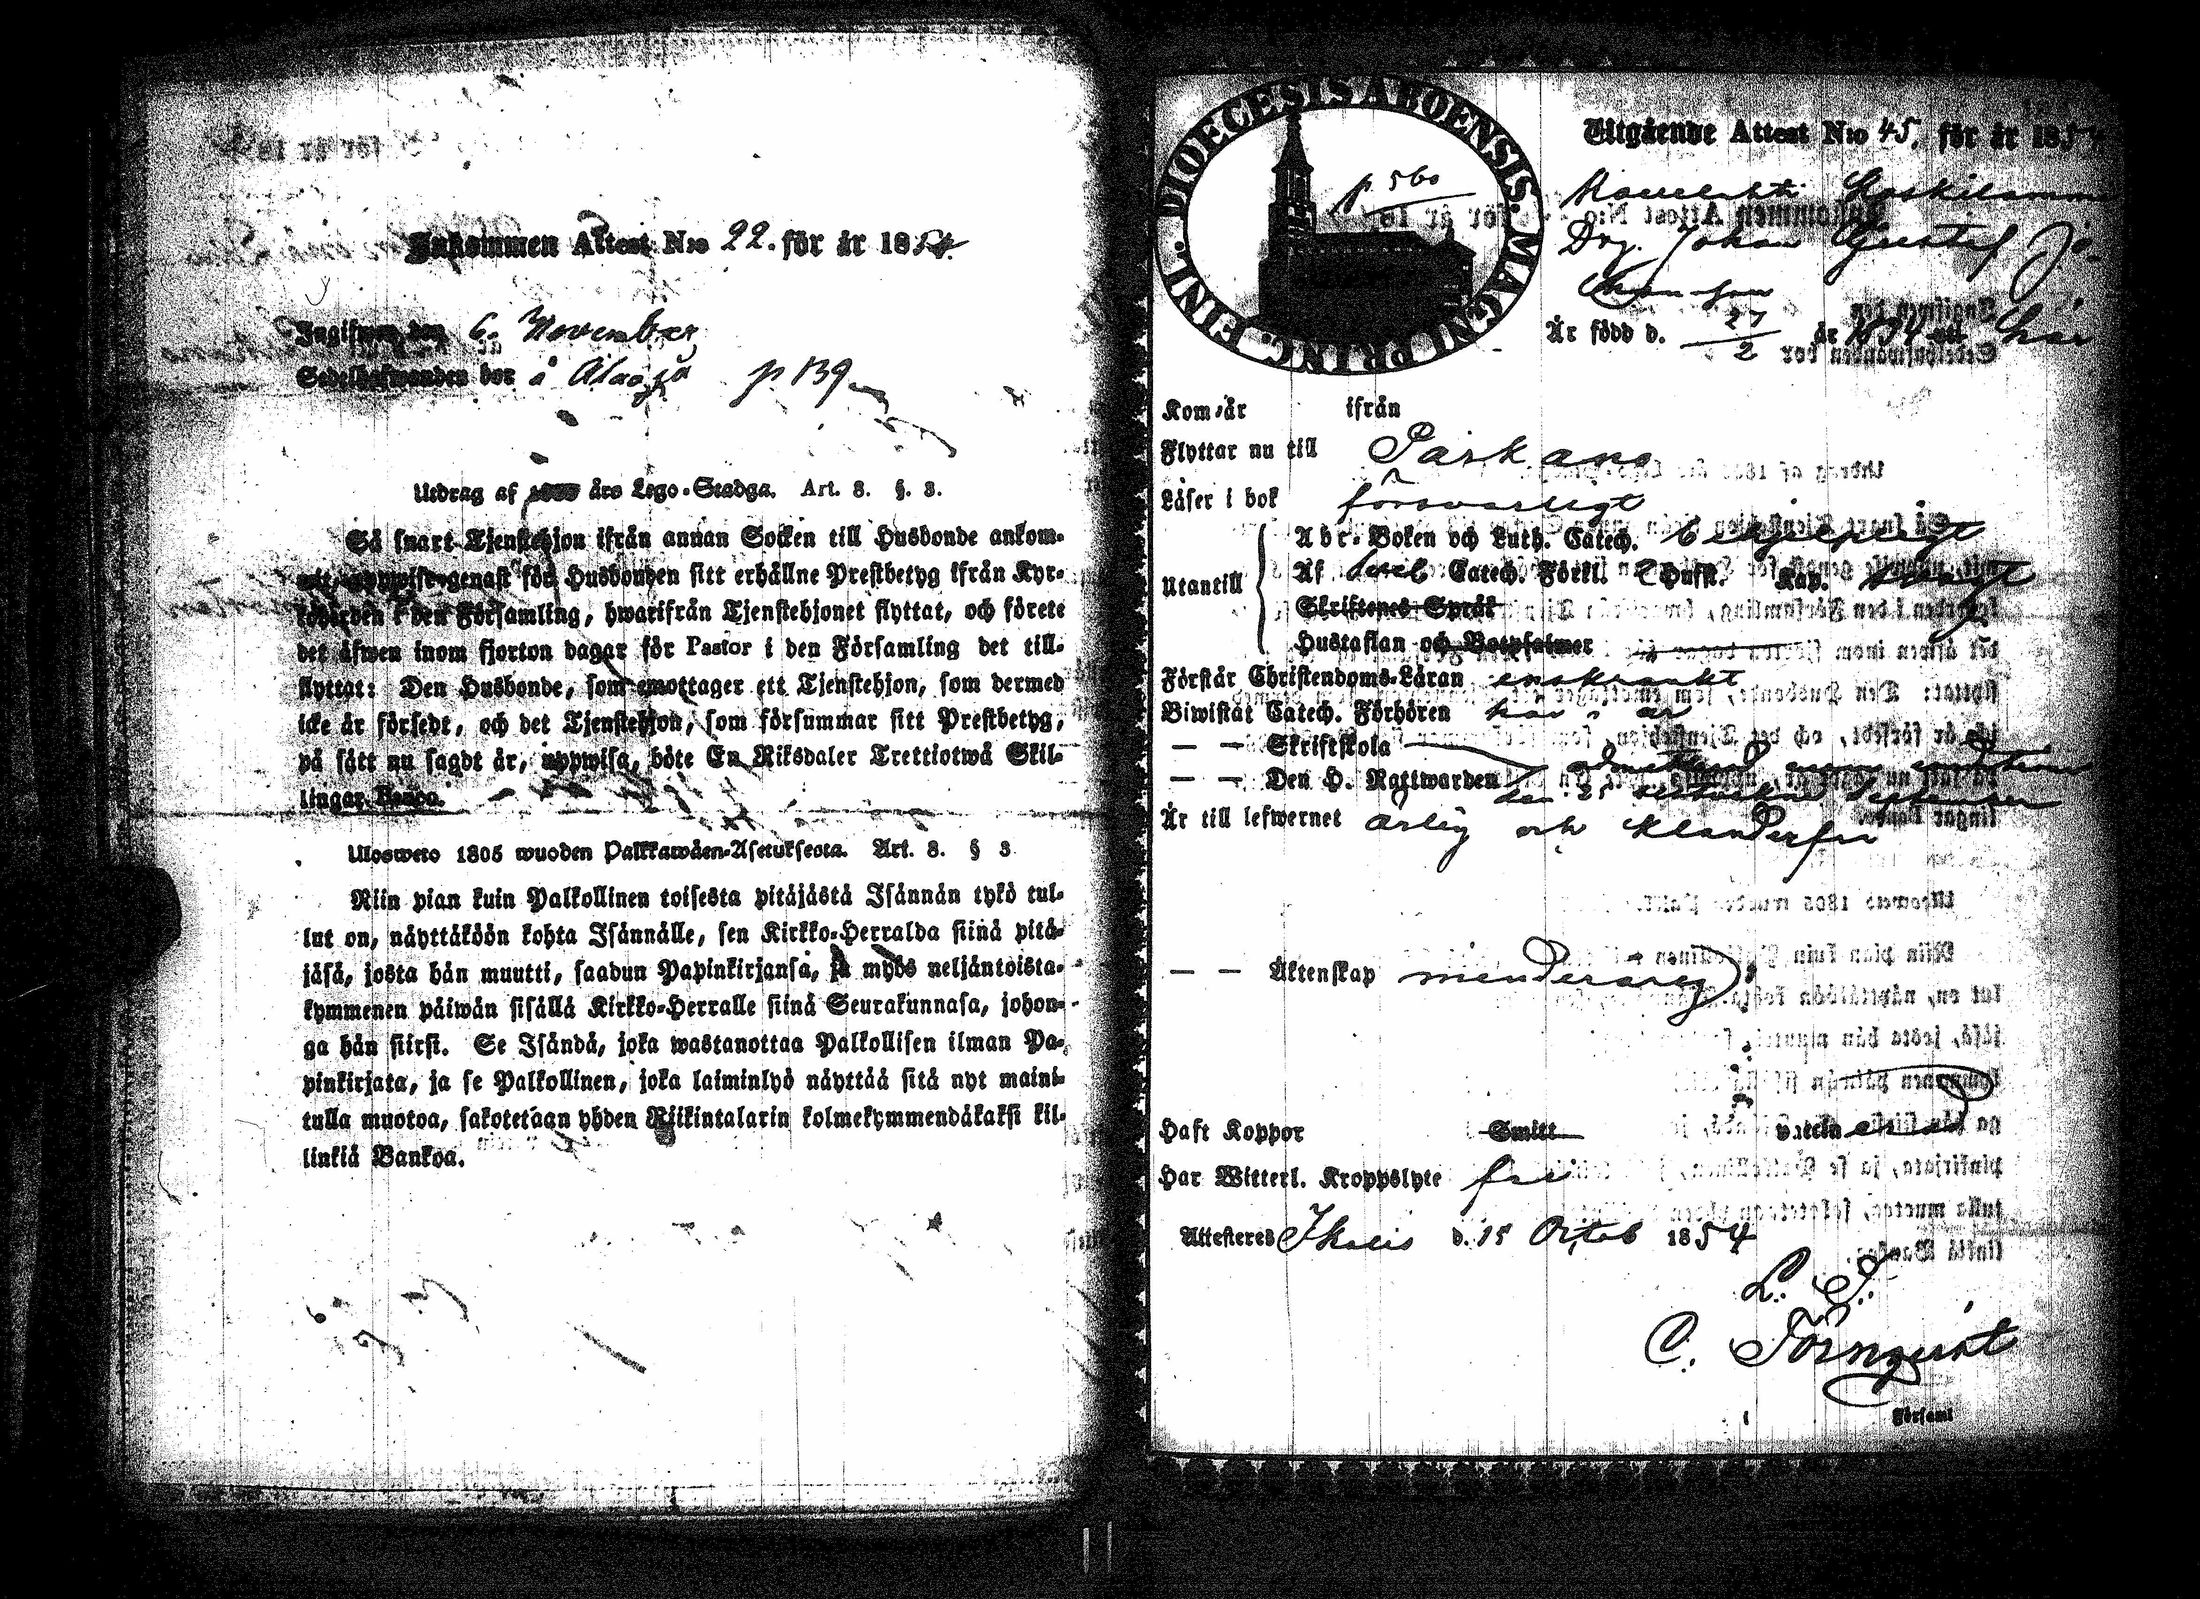 Inkommen Attest N:o 22. för år 1854.
Ingifwen den 6. November
Sedelhafwanden bor å Alaojá p 139
Utdrag af års Lego-Stadga. Art. 8. §. 3.
Så snart Tjenstehjon ifrån annan Socken till Husbonde ankom-
genast för Husbonden sitt erhållne Prestbetyg ifrån Kyr-
koherden i den Församling, hwarifrån Tjenstehjonet flyttat, och förete
det äfwen inom fjorton dagar för Pastor i den Församling det till-
flyttat: Den Husbonde, som emottager ett Tjenstehjon, som dermed
icke är försedt, och det Tjenstehjon, som försummar sitt Prestbetyg,
på sätt nu sagdt är, uppwisa, böte En Riksdaler Trettiotwå Skil-
lingar Banco.
Ulosweto 1805 wuoden Palkkawäen-Asetuksesta. Art. 8. § 3
Niin pian kuin Palkollinen toisesta pitäjästä Isännän tykö tul-
lut on, näyttäköön kohta Isännälle, sen Kirkko-Herralda siinä pitä-
jäsä, josta hän muutti, saadun Papinkirjansa, ja myös neljäntoista-
kymmenen päiwän sisällä Kirkko-Herralle siinä Seurakunnasa, johon-
ga hän siirsi. Se Isändä, joka wastanottaa Palkollisen ilman Pa-
pinkirjata, ja se Palkollinen, joka laiminlyö näyttää sitä nyt maini-
tulla muotoa, sakotetaan yhden Riikintalarin kolmekymmendäkaksi kil-
linkiä Bankoa.
DIOECESIS ABOENSIS. MAGNI PRINC. FINL.
p 560
Utgående Attest N:o 45. för år 1854
Koskelamm
Drg. Johan Gustaf Jo-
hansson
Är född d. 27/2 år 1834 här
Kom år ifrån
Flyttar nu till Parkano
Läser i bok försvarligt
Utantill
Abc-Boken och Luth. Catech. behjelpligt
Af Catech. Förkl. Husfl. Kap. svagt
Skriftenes Språk
Hustaflan och Botpsalmer
Förstår Christendoms-Läran enskränkt
Biwistat Catech. Förhören här i år
— — Skriftskola
— — Den H. Nattwarden admitterad
den 25 September
Är till lefwernet ärlig och klanderfri
— — Äktenskap menderårig
Haft Koppor Smitt
Har Witterl. Kroppslyte fri
Attesteras Ikalis d. 15 Octob 1854
L. S.
C. Törnqvist
Församl